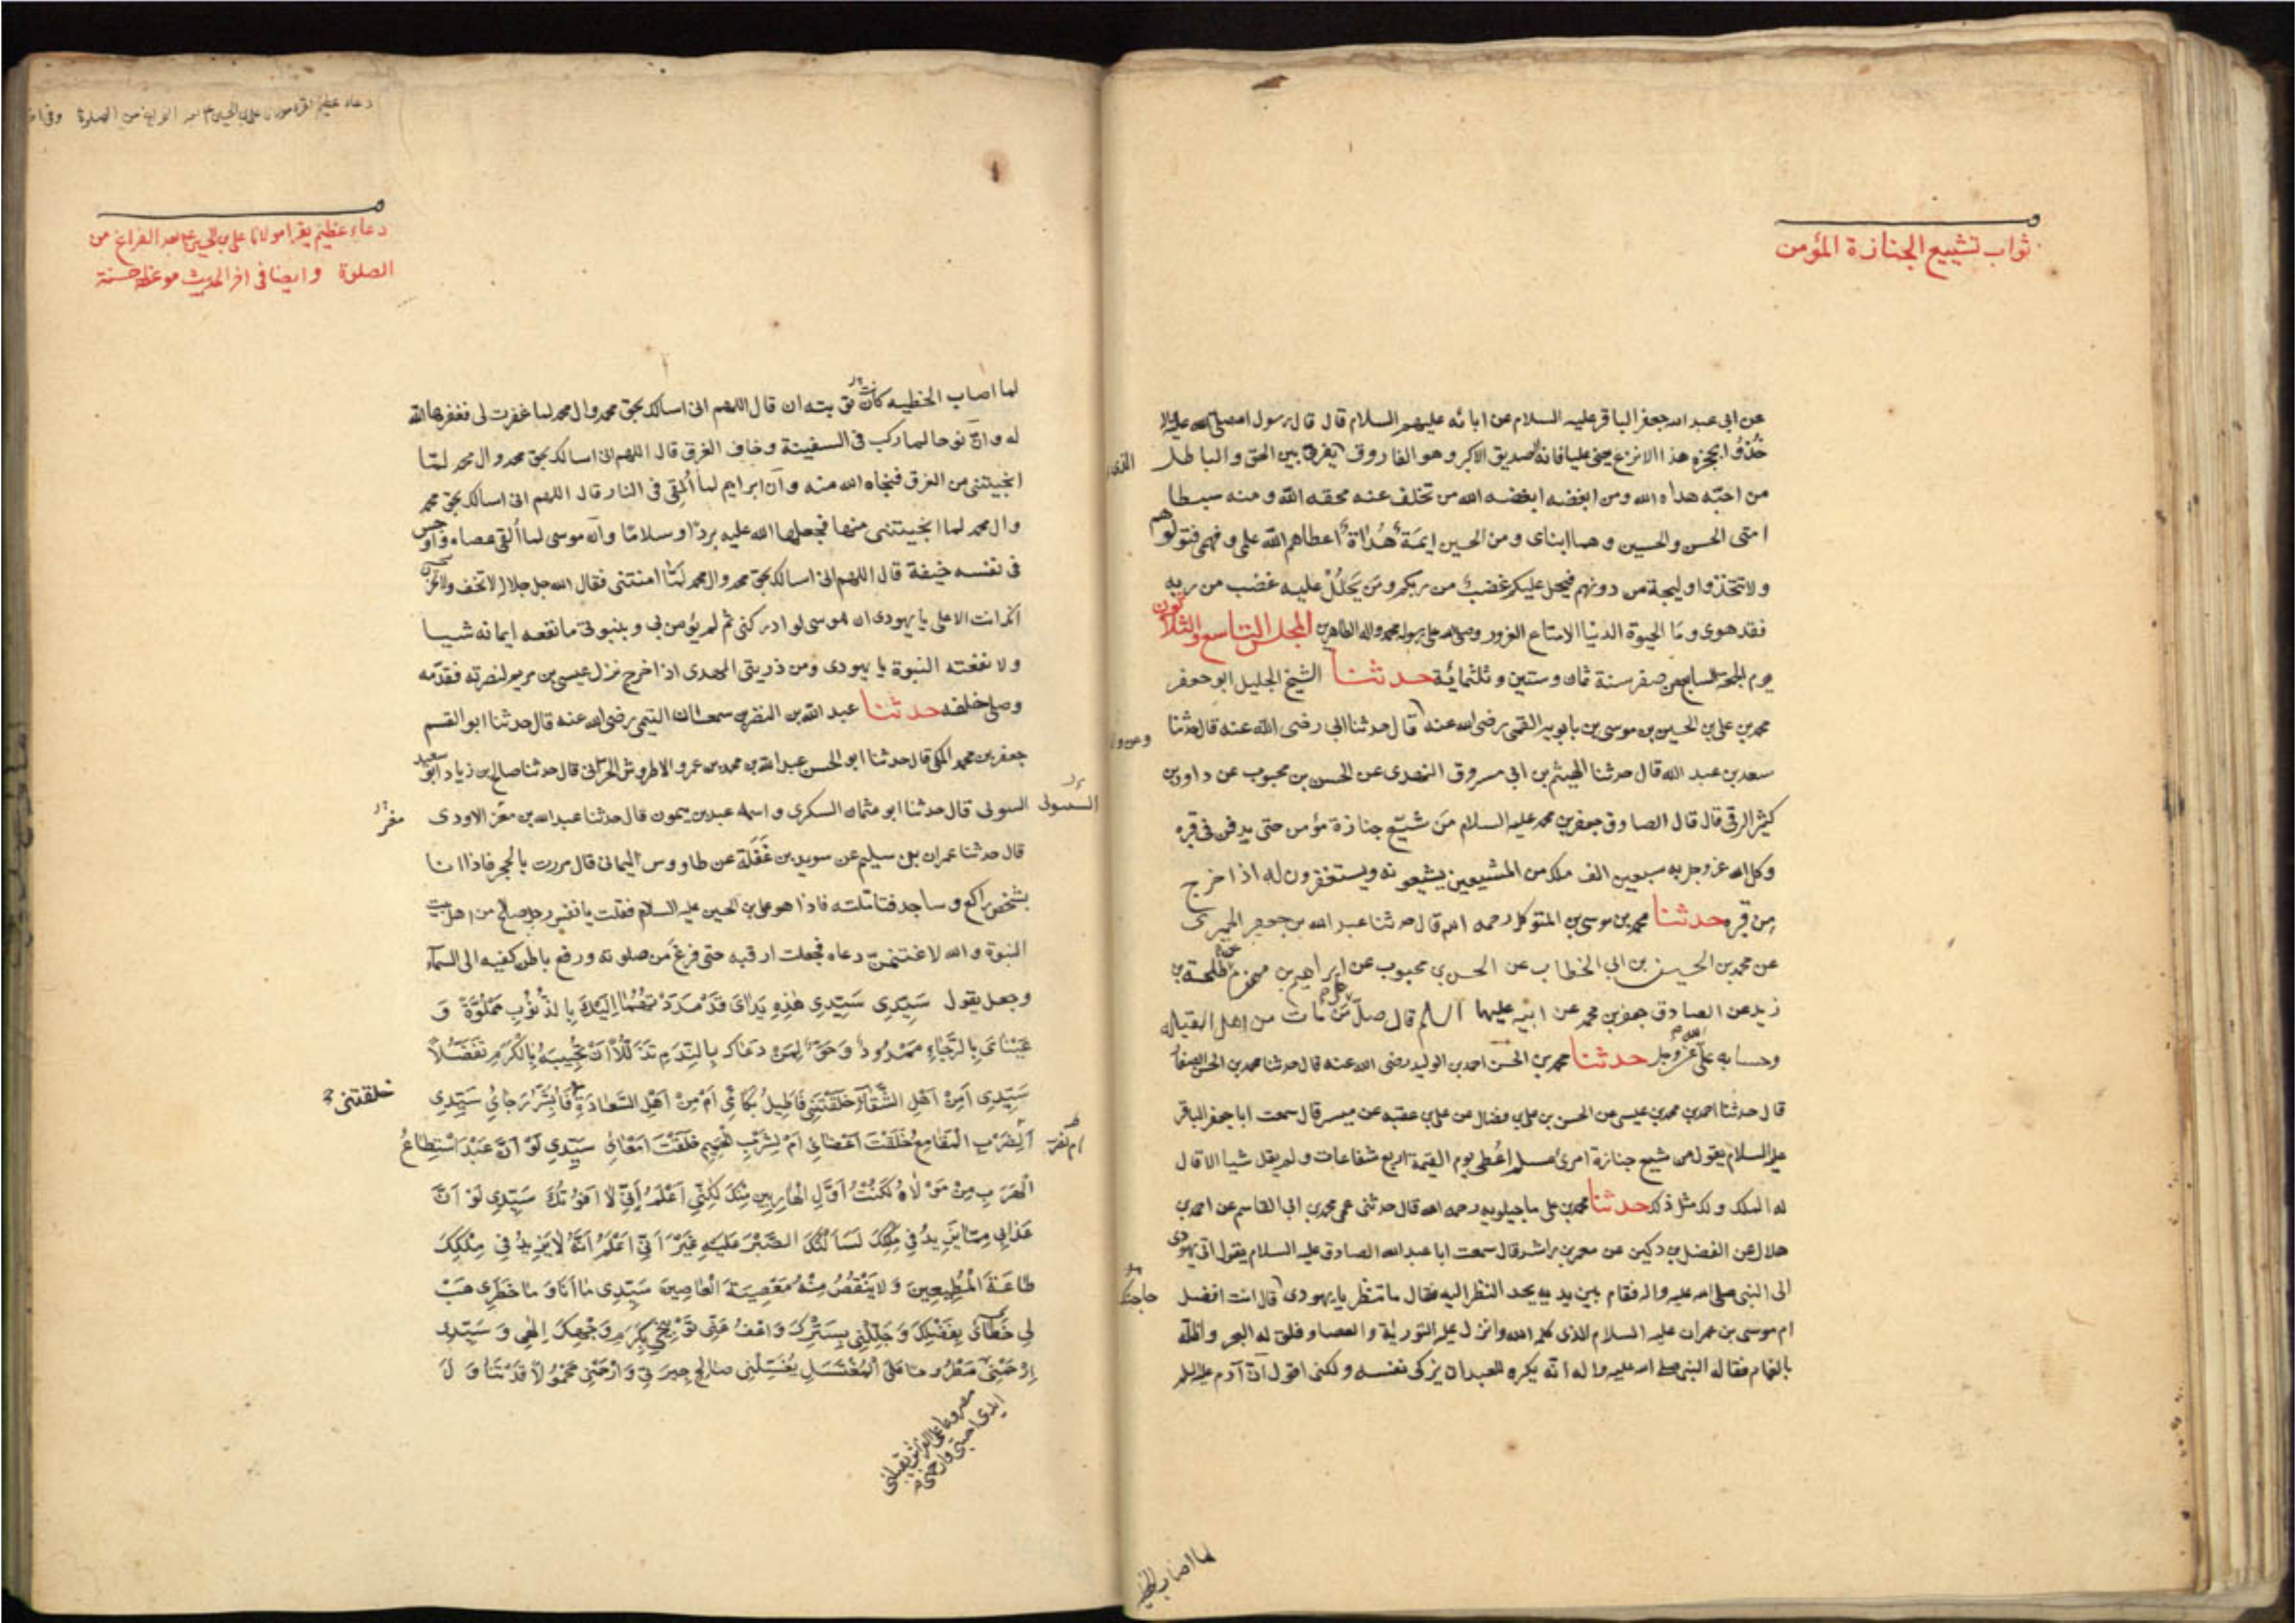 ثواب تشييع الجنازة المؤمن
عن ابى عبد الله جعفر الباقر عليه السلام عن ابائه عليهم السلام قال قال رسول الله صلى الله عليه واله
خُذُوا بحجزة هذا الانزع يعنى عليا فانه الصديق الاكبر وهو الفاروق يفرق بين الحق والباطل
من احبّه هداه الله ومن ابغضه ابغضه الله من تخلف عنه محقه الله ومنه سبطا
امتى الحسن والحسين وهما ابناى ومن الحسين ايمة هُداة اعطاهم الله علمى وفهمى فتولوهم
ولا تتخذوا وليجة من دونهم فيحل عليكم غضب من ربكم ومَن يَحلُلْ عليه غضب من ربه
فقد هوى وما الحيوة الدنيا الا متاع الغرور وصلى الله على رسوله محمد واله الطاهرين المجلس التاسع والثلاثون
يوم الجمعة السابع من صفر سنة ثمان وستين وثلثمائة حدثنا الشيخ الجليل ابو جعفر
محمد بن على بن الحسين بن موسى بن بابويه القمى رضى الله عنه قال حدثنا ابى رضى الله عنه قال حدثنا
سعد بن عبد الله قال حدثنا الهيثم بن ابى مسروق النهدى عن الحسن بن محبوب عن داود بن
كثير الرقى قال قال الصادق جعفر بن محمد عليه السلام مَن شيّع جنازة مؤمن حتى يدفن فى قبره
وكل الله عز وجل به سبعين الف ملك من المشيعين يشيعونه ويستغفرون له اذا خرج
مِن قبره حدثنا محمد بن موسى بن المتوكل رحمه الله قال حدثنا عبد الله بن جعفر الحميرى
عن محمد بن الحسين بن ابى الخطاب عن الحسن بن محبوب عن ابراهيم بن مهزم عن طلحة بن
زيد عن الصادق جعفر بن محمد عن ابيه عليهما السلم قال مَن مات من اهل القبلة
وحسابه على الله عز وجل حدثنا محمد بن الحسن احمد بن الوليد رضى الله عنه قال حدثنا محمد بن الحسن الصفار
قال حدثنا احمد بن محمد بن عيسى عن الحسن بن على بن فضال عن على بن عقبه عن ميسر قال سمعت ابا جعفر الباقر
عليه السلام يقول من شيع جنازة امرئ مسلم اعُطى يوم القيمة اربع شفاعات ولم يقل شيا الا قال
له الملك ولك مثل ذلك حدثنا محمد بن على ماجيلويه رحمه الله قال حدثنى عمى محمد بن ابى القاسم عن احمد بن
هلال عن الفضل بن دكين عن معمر بن راشد قال سمعت ابا عبد الله الصادق عليه السلام يقول اتى يهودى
الى النبى صلى الله عليه واله فقام بين يديه يحد النظر اليه فقال ما تنظر يا يهودى قال انت افضل
حاجتك
ام موسى بن عمران عليه السلام الذى كلمه الله وانزل عليه التورية والعصا وفلق له البحر واظله
بالغمام فقال له النبى صلى الله عليه واله انه يكره للعبد ان يزكى نفسه ولكنى اقول ان آدم عليه السلم
لما اصاب الخطيه
دعاء عظيم يقرا مولانا على بن الحسين ع بعد الفراغ من
الصلوة وايضا فى اخر الحديث موعظه حسنة
لما اصاب الخطيه كانت توبته ان قال اللهم انى اسالك بحق محمد وال محمد لما غفرت لى فغفرها الله
له وان نوحا لما ركب فى السفينة وخاف الغرق قال اللهم انى اسالك بحق محمد وال محمد لمّا
انجيتنى من الغرق فنجاه الله منه وان ابراهيم لما اُلقى فى النار قال اللهم انى اسالك بحق محمد
وال محمد لما انجيتنى منها فجعلها الله عليه بردًا وسلامًا وان موسى لما القى عصاه واوجس
فى نفسه خيفة قال اللهم انى اسالك بحق محمد وال محمد لمّا امنتنى فقال الله جل جلاله لا تخف ولا تحزن
انك انت الاعلى يا يهودى ان موسى لو ادركنى ثم لم يؤمن بى وبنبوتى ما نفعه ايمانه شيا
ولا نفعته النبوة يا يهودى ومن ذريتى المهدى اذا خرج نزل عيسى بن مريم لنصرته فقدّمه
وصلى خلفه حدثنا عبد الله بن النضر بن سمعان التيمى رضى الله عنه قال حدثنا ابو القسم
جعفر بن محمد المكى قال حدثنا ابو الحسن عبد الله بن محمد بن عمرو الاطروش الحرانى قال حدثنا صالح بن زياد ابو سعيد
السولى قال حدثنا ابو عثمان السكرى واسمه عبد بن ميمون قال حدثنا عبد الله بن معز الاودى
قال حدثنا عمران بن سليم عن سويد بن غَفَلَة عن طاووس اليمانى قال مررت بالحجر فاذا انا
بشخص راكع وساجد فتاملته فاذا هو على بن الحسين عليه السلام فقلت يا نفس رجل صالح من اهل بيت
النبوة والله لاغتنمنّ دعاءه فجعلت ارقبه حتى فرغ من صلوته ورفع باطن كفيه الى السماء
وجعل يقول سَيّدِى سَيّدِى هٰذِهِ يَدَاىَ قَدْ مَدَدْتُهُمَا اِلَيْكَ بِالذُّنُوبِ مَمْلُوَّةً وَ
عَيْنَاىَ بِالرَّجَاءِ مَمْدُودَة وَحَقّ لِمَنْ دَعَاكَ بِالنَّدَمِ تَذَلُّلاً اَنْ تُجِيبَهُ بِالْكَرَمِ تَفَضُّلاً
سَيّدِى اَمِنْ اَهْلِ الشَّقَاءِ خَلَقْتَنِى فَاُطِيلُ بُكَائِى اَمْ مِنْ اَهْلِ السَّعَادَةِ فَاُبَشّرُ رَجَائِى سَيّدِى
خلقتنى
اَلِضَرْبِ الْمَقَامِعِ خَلَقْتَ اَعْضَائِى اَمْ لِشُرْبِ الْحَمِيمِ خَلَقْتَ اَمْعَائِى سَيّدِى لَوْ اَنَّ عَبْدًا اسْتَطَاعَ
الْهَرَبَ مِنْ مَوْلاهُ لَكُنْتُ اَوَّلَ الْهَارِبِينَ مِنْكَ لٰكِنّى اَعْلَمُ اَنّى لا اَفُوتُكَ سَيّدِى لَوْ اَنَّ
عَذَابِى مِمَّا يَزِيدُ فِى مُلْكِكَ لَسَاَلْتُكَ الصَّبْرَ عَلَيْهِ غَيْرَ اَنّى اَعْلَمُ اَنَّهُ لا يَزِيدُ فِى مُلْكِكَ
طَاعَةَ الْمُطِيعِينَ وَلا يَنْقُصُ مِنْهُ مَعْصِيَةَ الْعَاصِينَ سَيّدِى مَا اَنَا وَمَا خَطَرِى هَبْ
لِى خَطَائِى بِفَضْلِكَ وَجَلّلْنِى بِسَتْرِكَ وَاعْفُ عَنْ تَوْبِيخِى بِكَرَمِ وَجْهِكَ اِلٰهِى وَسَيّدِى
اِرْحَمْنِى مَطْرُوحًا عَلَى الْمُغْتَسَلِ يُغَسّلُنِى صَالِحُ جِيرَتِى وَارْحَمْنِى مَحْمُولاً قَدْ تَنَاوَلَ
مصروعا على الفراش تقلبنى
ايدى احبتى وارحمنى